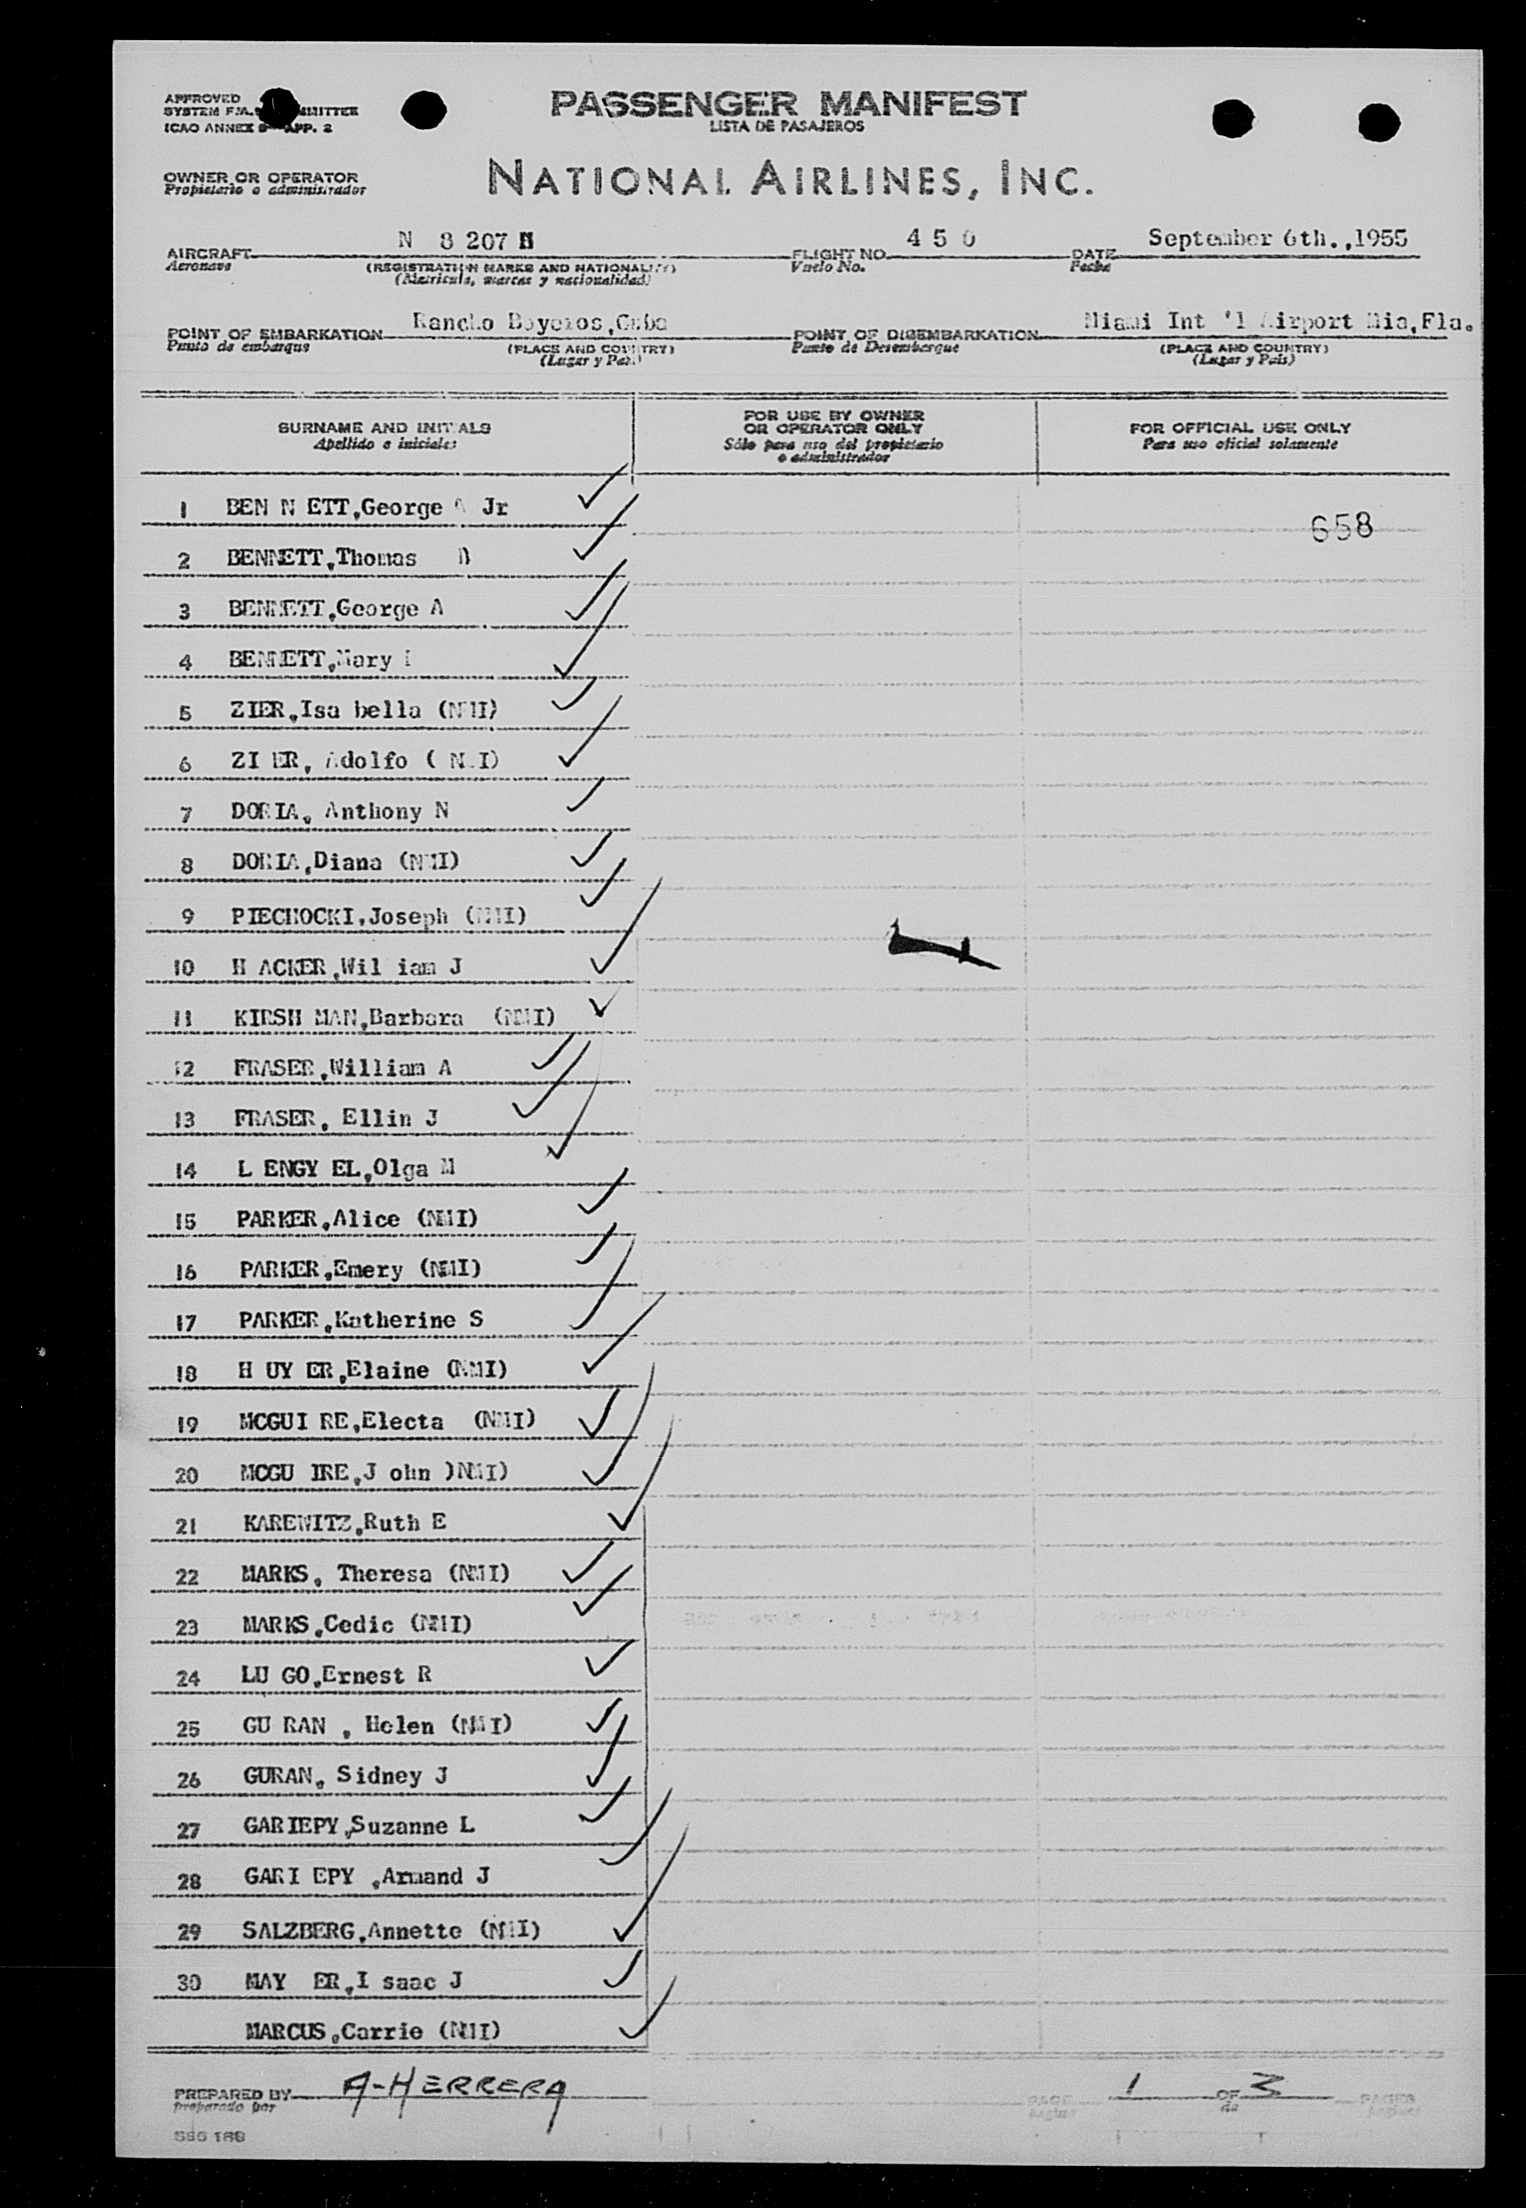 APPROVED
PASSENGER MANIFEST
LISTA DE PASAJEROS
ICAO ANNEX 9 APP. 2
OWNER OR OPERATOR
Propietario o administrador
NATIONAL AIRLINES, INC.
AIRCRAFT N 8 207 H FLIGHT NO. 4 5 0 DATE September 6th.,1955
Aeronave (REGISTRATION MARKS AND NATIONALITY) Vuelo No. Fecha
(Matricula, marcas y nacionalidad)
POINT OF EMBARKATION Rancho Boyeros,Cuba POINT OF DISEMBARKATION Miami Int 'l Airport Mia,Fla.
Punto de embarque (PLACE AND COUNTRY) Punto de Desembarque (PLACE AND COUNTRY)
(Lugar y Pais) (Lugar y Pais)
SURNAME AND INITIALS
Apellido e iniciales
FOR USE BY OWNER
OR OPERATOR ONLY
Sólo para uso del propietario
o administrador
FOR OFFICIAL USE ONLY
Para uso oficial solamente
1 BEN N ETT,George A Jr
658
2 BENNETT,Thomas
3 BENNETT,George A
4 BENNETT,Mary
5 ZIER,Isa bella (NMI)
6 ZI ER, Adolfo ( NMI)
7 DORIA, Anthony N
8 DORIA,Diana (NMI)
9 PIECHOCKI,Joseph (NMI)
10 H ACKER,Wil iam J
11 KIRSH MAN,Barbara (NMI)
12 FRASER,William A
13 FRASER, Ellin J
14 L ENGY EL,Olga M
15 PARKER,Alice (NMI)
16 PARKER,Emery (NMI)
17 PARKER,Katherine S
18 H UY ER,Elaine (NMI)
19 MCGUI RE,Electa (NMI)
20 MCGU IRE,J ohn )NMI)
21 KAREWITZ,Ruth E
22 MARKS, Theresa (NMI)
23 MARKS,Cedic (NMI)
24 LU GO,Ernest R
25 GU RAN , Helen (NMI)
26 GURAN, Sidney J
27 GARIEPY,Suzanne L
28 GARI EPY ,Armand J
29 SALZBERG,Annette (NMI)
30 MAY ER,I saac J
MARCUS,Carrie (NMI)
PREPARED BY A-HERRERA PAGE 1 OF 3 PAGES
preparado por pagina de